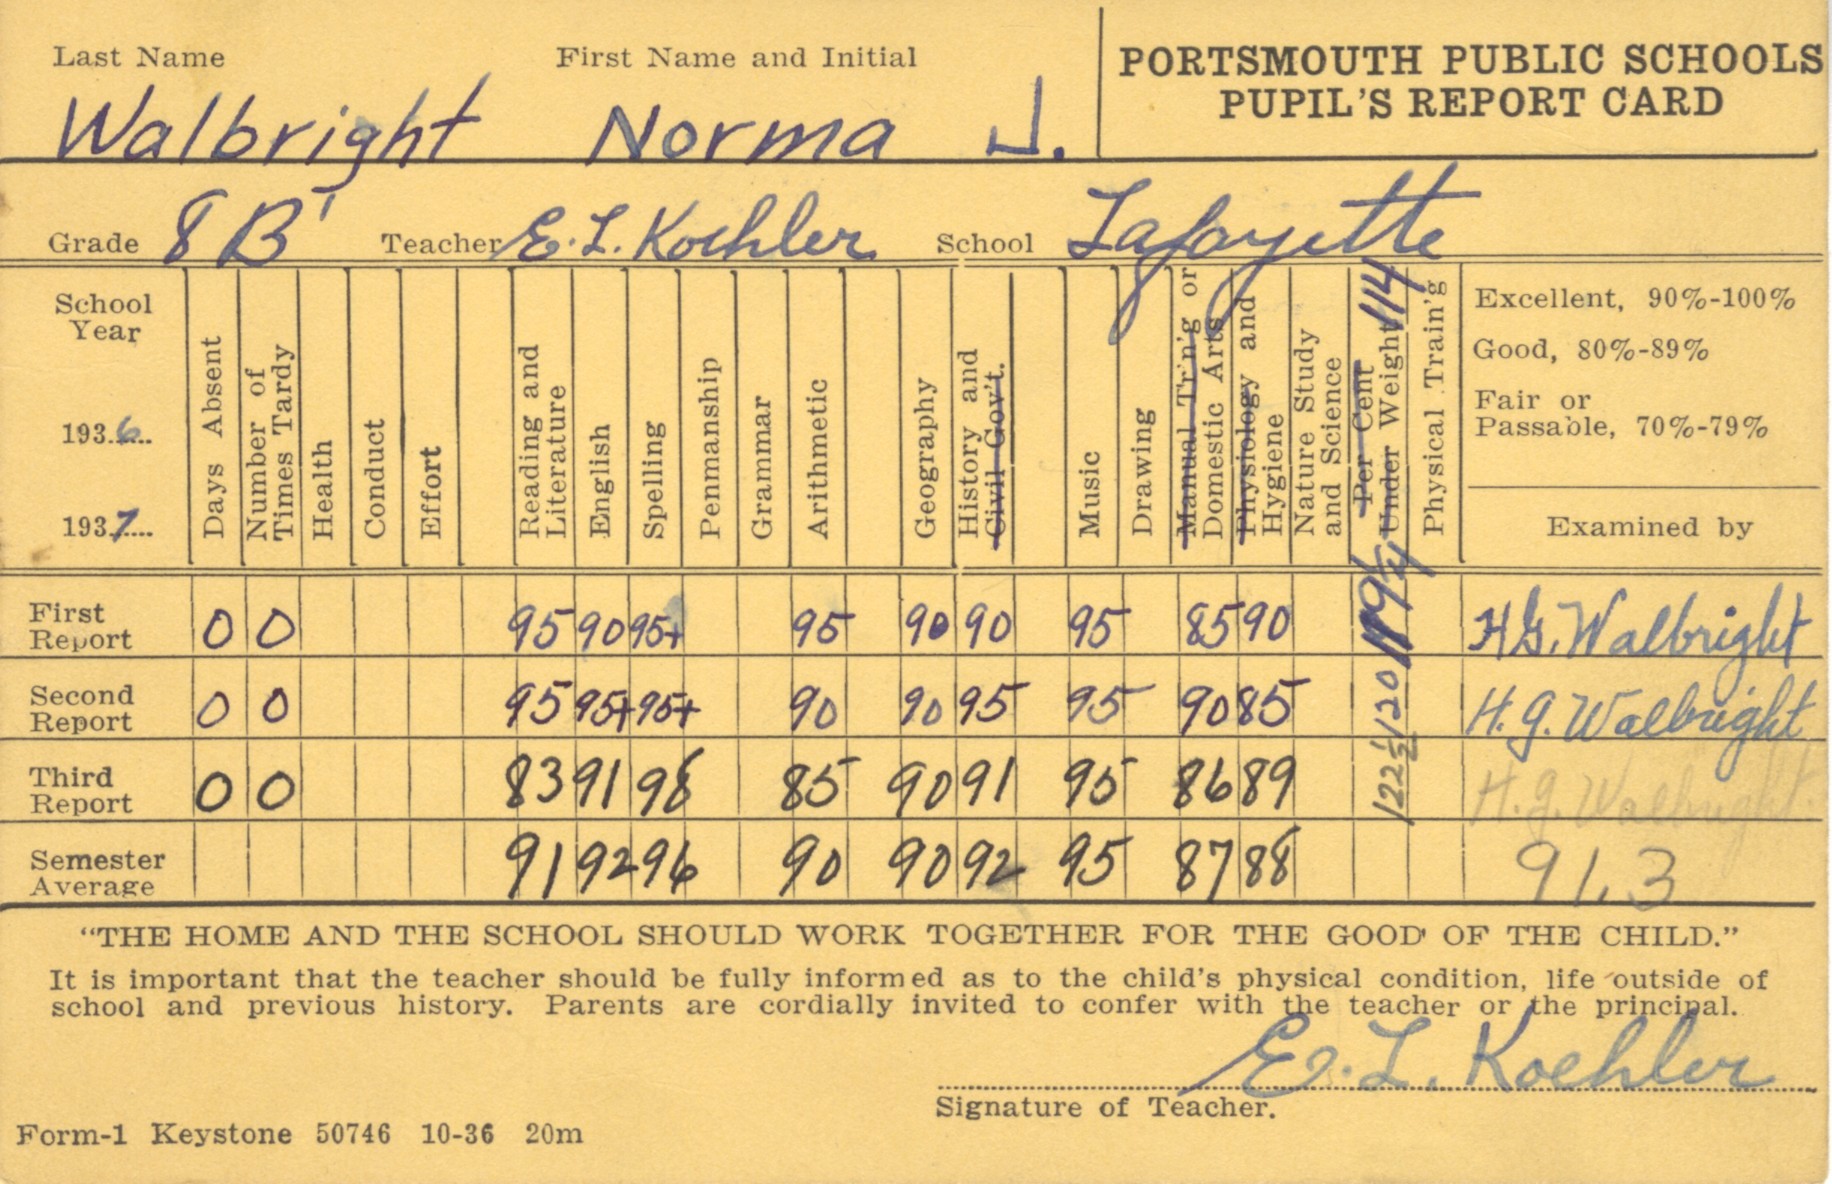 Last Name First Name and Initial
PORTSMOUTH PUBLIC SCHOOLS
PUPIL'S REPORT CARD
Walbright Norma J.
Grade 8 B¹ Teacher E. L. Koehler School Lafayette
School
Year
193.6...
193.7...
Days Absent
Number of
Times Tardy
Health
Conduct
Effort
Reading and
Literature
English
Spelling
Penmanship
Grammar
Arithmetic
Geography
History and
Civil Gov't.
Music
Drawing
Manual Tr'n'g or
Domestic Arts
Physiology and
Hygiene
Nature Study
and Science
Per Cent
Under Weight 114
Physical Train'g
Excellent, 90%-100%
Good, 80%-89%
Fair or
Passable, 70%-79%
Examined by
First
Report 0 0 95 90 95+ 95 90 90 95 85 90 119¼ H.G. Walbright
Second
Report 0 0 95 95+ 95+ 90 90 95 95 90 85 120 H. G. Walbright
Third
Report 0 0 83 91 98 85 90 91 95 86 89 122½ H. G. Walbright
Semester
Average 91 92 96 90 90 92 95 87 88 91.3
"THE HOME AND THE SCHOOL SHOULD WORK TOGETHER FOR THE GOOD OF THE CHILD."
It is important that the teacher should be fully informed as to the child's physical condition, life outside of
school and previous history. Parents are cordially invited to confer with the teacher or the principal.
E. L. Koehler
Signature of Teacher.
Form-1 Keystone 50746 10-36 20m